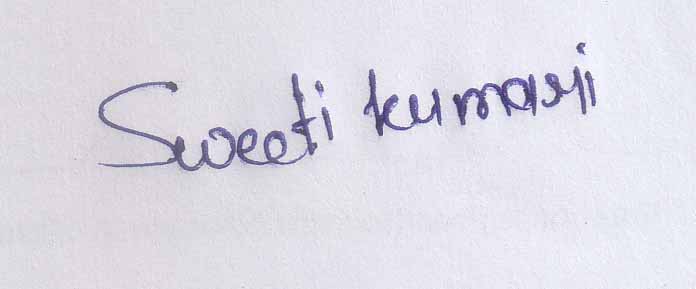 Sweeti kumari